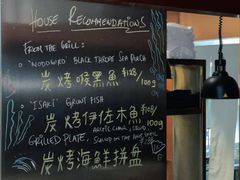 HOUSE RECOMMENDATIONS
FROM THE GRILL:
"NODOGURO" BLACK THROAT SEA PERCH
炭烤喉黑魚 $128/100g
"ISAKI" GRUNT FISH
炭烤伊佐木魚 $128/100g
GRILLED PLATE.
炭烤海鮮拼盤